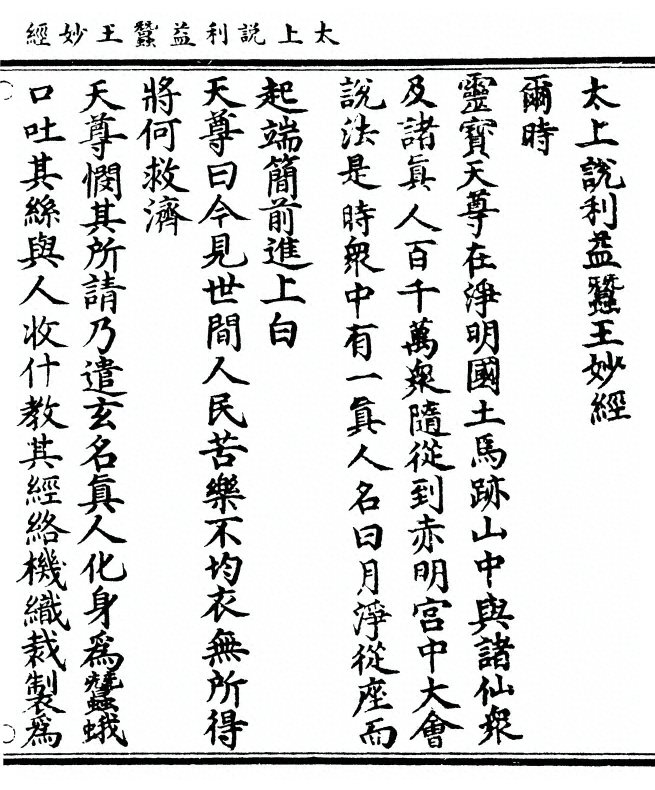 太上説利益蠶王妙經
太上說利益蠶王妙經
爾時
靈寶天尊在淨明國土馬跡山中與諸仙衆
及諸眞人百千萬衆隨從到赤明宮中大會
說法是時衆中有一眞人名曰月淨從座而
起端簡前進上白
天尊曰今見世間人民苦樂不均衣無所得
將何救濟
天尊憫其所請乃遣玄名眞人化身爲蠶蛾
口吐其絲與人收什教其經絡機織裁製爲